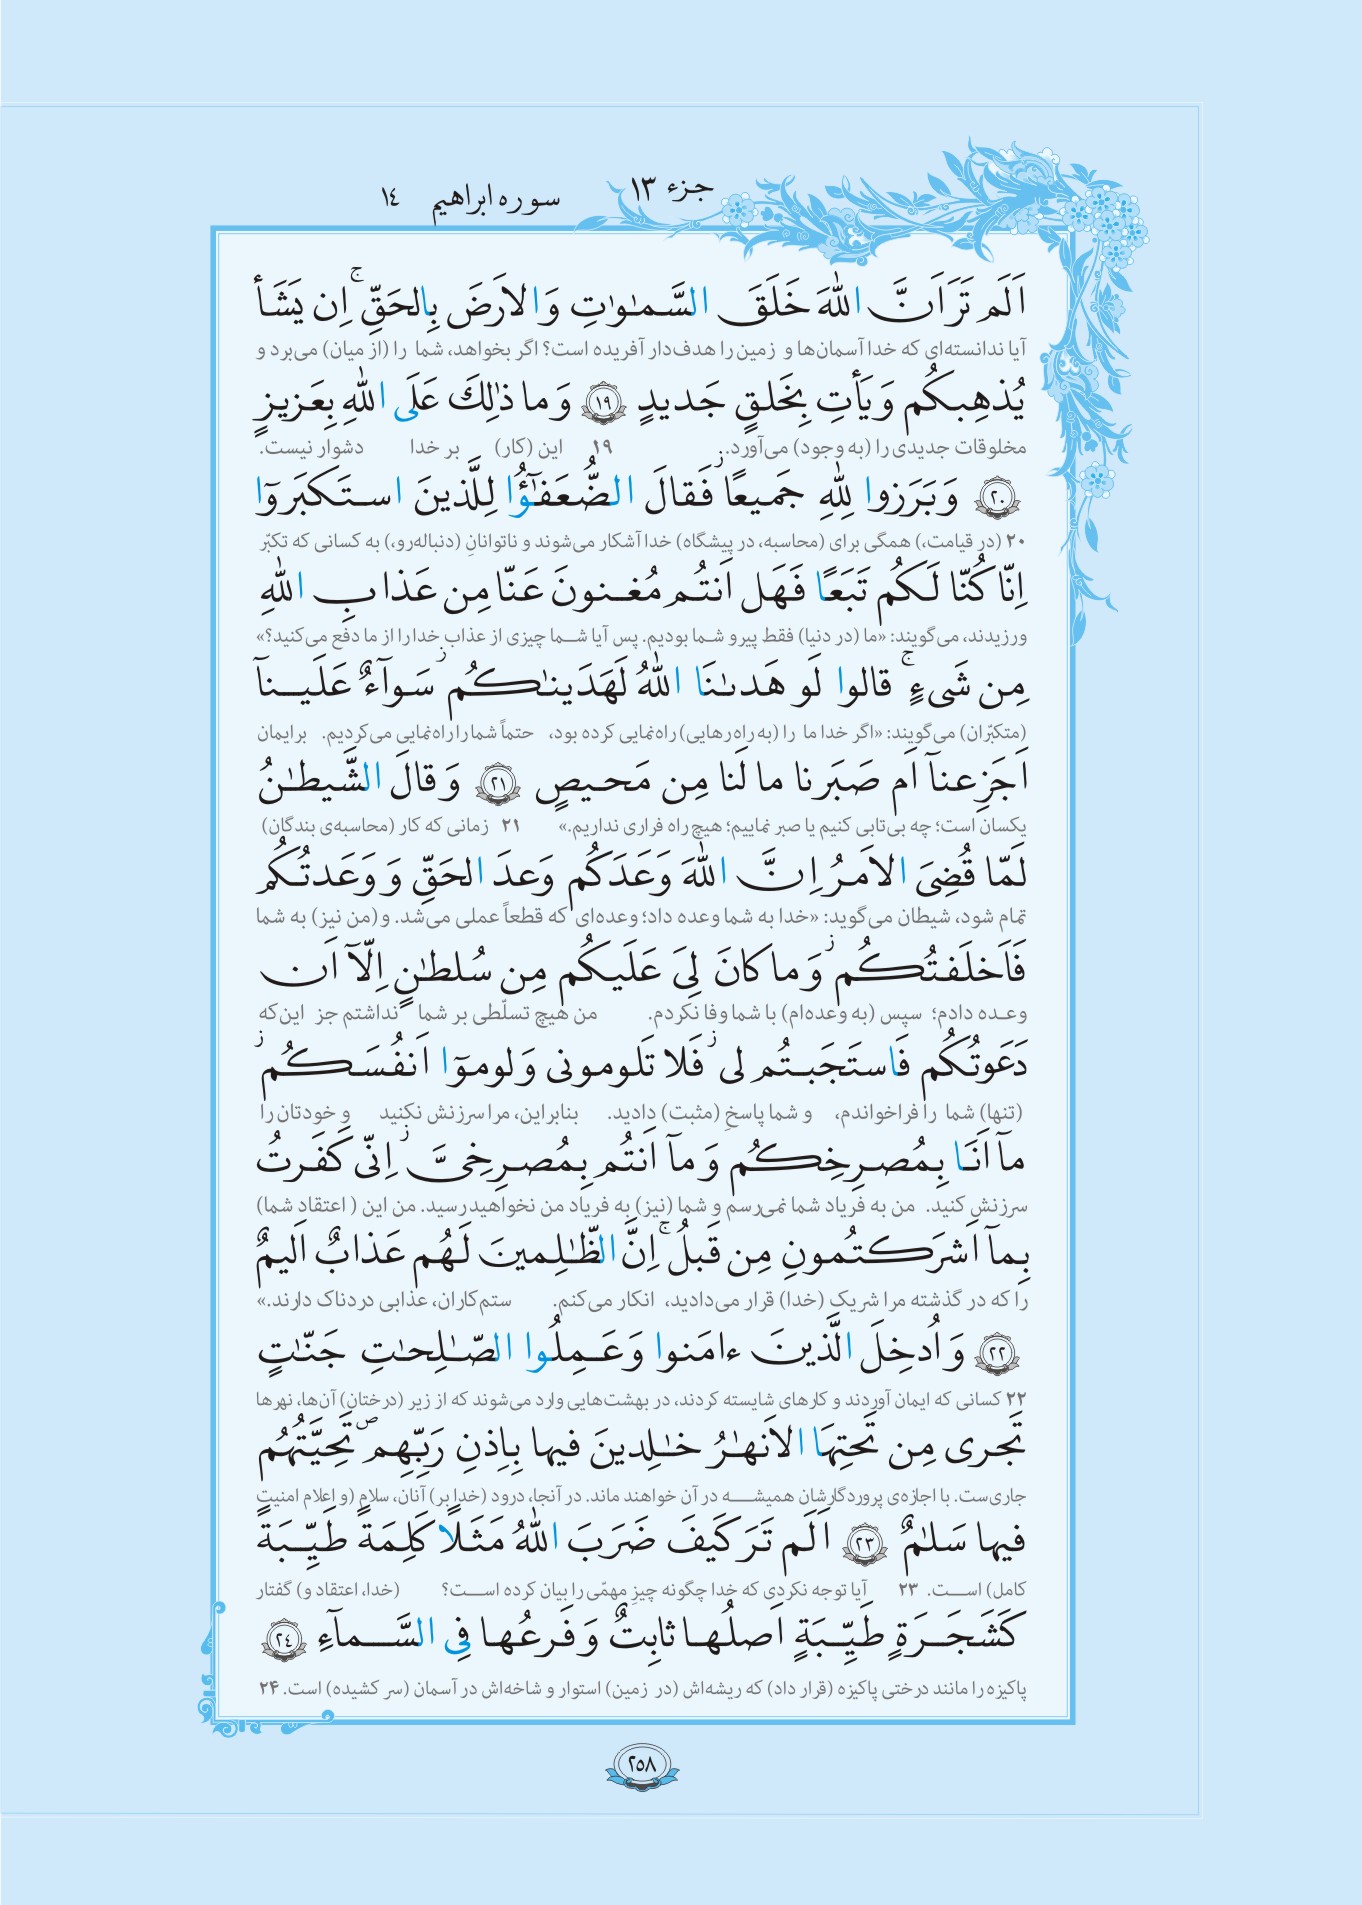 جزء ١٣
سوره ابراهیم ١٤
اَلَم تَرَ اَنَّ اللّٰهَ خَلَقَ السَّمٰوٰتِ وَالاَرضَ بِالحَقِّ ۚ اِن يَشَأ
آیا ندانسته‌ای که خدا آسمان‌ها و زمین را هدف‌دار آفریده است؟ اگر بخواهد، شما را (از میان) می‌برد و
يُذهِبكُم وَيَأتِ بِخَلقٍ جَديدٍ ١٩ وَما ذٰلِكَ عَلَى اللّٰهِ بِعَزيزٍ
مخلوقات جدیدی را (به وجود) می‌آورد.. ۱۹ این (کار) بر خدا دشوار نیست.
٢٠ وَبَرَزوا لِلّٰهِ جَميعًا ز فَقالَ الضُّعَفٰٓؤُا لِلَّذينَ استَكبَروٓا
۲۰ (در قیامت،) همگی برای (محاسبه، در پیشگاه) خدا آشکار می‌شوند و ناتوانانِ (دنباله‌رو،) به کسانی که تکبّر
اِنّا كُنّا لَكُم تَبَعًا فَهَل اَنتُم مُغنونَ عَنّا مِن عَذابِ اللّٰهِ
ورزیدند، می‌گویند: «ما (در دنیا) فقط پیرو شما بودیم. پس آیا شما چیزی از عذاب خدا را از ما دفع می‌کنید؟»
مِن شَىءٍ ۚ قالوا لَو هَدىٰنَا اللّٰهُ لَهَدَينٰكُم ز سَوآءٌ عَلَينآ
(متکبّران) می‌گویند: «اگر خدا ما را (به راه رهایی) راه‌نمایی کرده بود، حتماً شما را راه‌نمایی می‌کردیم. برایمان
اَجَزِعنآ اَم صَبَرنا ما لَنا مِن مَحيصٍ ٢١ وَقالَ الشَّيطٰنُ
یکسان است؛ چه بی‌تابی کنیم یا صبر نماییم؛ هیچ راه فراری نداریم.» ۲۱ زمانی که کار (محاسبه‌ی بندگان)
لَمّا قُضِىَ الاَمرُ اِنَّ اللّٰهَ وَعَدَكُم وَعدَ الحَقِّ وَوَعَدتُكُم
تمام شود، شیطان می‌گوید: «خدا به شما وعده داد؛ وعده‌ای که قطعاً عملی می‌شد. و (من نیز) به شما
فَاَخلَفتُكُم ز وَما كانَ لِىَ عَلَيكُم مِن سُلطٰنٍ اِلّآ اَن
وعده دادم؛ سپس (به وعده‌ام) با شما وفا نکردم. من هیچ تسلّطی بر شما نداشتم جز این‌که
دَعَوتُكُم فَاستَجَبتُم لى ز فَلا تَلومونى وَلوموٓا اَنفُسَكُم ز
(تنها) شما را فراخواندم، و شما پاسخِ (مثبت) دادید. بنابراین، مرا سرزنش نکنید و خودتان را
مآ اَنَا بِمُصرِخِكُم وَمآ اَنتُم بِمُصرِخِىَّ ز اِنّى كَفَرتُ
سرزنش کنید. من به فریاد شما نمی‌رسم و شما (نیز) به فریاد من نخواهید رسید. من این ( اعتقاد شما)
بِمآ اَشرَكتُمونِ مِن قَبلُ ۚ اِنَّ الظّٰلِمينَ لَهُم عَذابٌ اَليمٌ
را که در گذشته مرا شریک (خدا) قرار می‌دادید، انکار می‌کنم. ستم‌کاران، عذابی دردناک دارند.»
٢٢ وَاُدخِلَ الَّذينَ ءامَنوا وَعَمِلُوا الصّٰلِحٰتِ جَنّٰتٍ
۲۲ کسانی که ایمان آوردند و کارهای شایسته کردند، در بهشت‌هایی وارد می‌شوند که از زیر (درختانِ) آن‌ها، نهرها
تَجرى مِن تَحتِهَا الاَنهٰرُ خٰلِدينَ فيها بِاِذنِ رَبِّهِم ص تَحِيَّتُهُم
جاری‌ست. با اجازه‌ی پروردگارشان همیشه در آن خواهند ماند. در آنجا، درود (خدا بر) آنان، سلام (و اعلام امنیتِ
فيها سَلٰمٌ ٢٣ اَلَم تَرَ كَيفَ ضَرَبَ اللّٰهُ مَثَلًا كَلِمَةً طَيِّبَةً
کامل) است. ۲۳ آیا توجه نکردی که خدا چگونه چیزِ مهمّی را بیان کرده است؟ (خدا، اعتقاد و) گفتار
كَشَجَرَةٍ طَيِّبَةٍ اَصلُها ثابِتٌ وَفَرعُها فِى السَّمآءِ ٢٤
پاکیزه را مانند درختی پاکیزه (قرار داد) که ریشه‌اش (در زمین) استوار و شاخه‌اش در آسمان (سر کشیده) است. ۲۴
٢٥٨